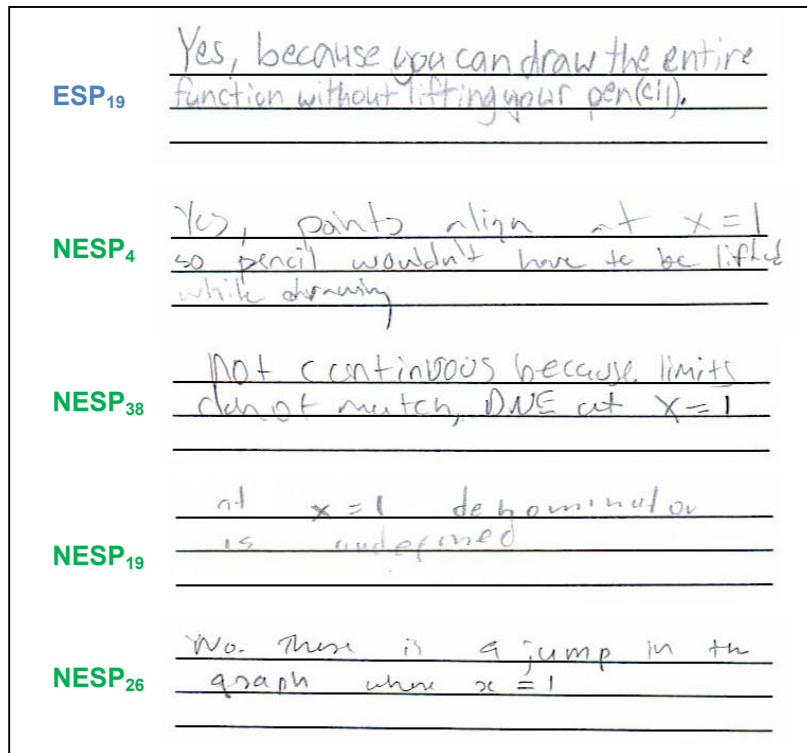 ESP₁₉
Yes, because you can draw the entire
function without lifting your pen(cil).
NESP₄
Yes, points align at x = 1
so pencil wouldn't have to be lifted
while drawing
NESP₃₈
not continuous because limits
do not match, DNE at x = 1
NESP₁₉
at x = 1 denominator
is undefined
NESP₂₆
No. There is a jump in th
graph where x = 1